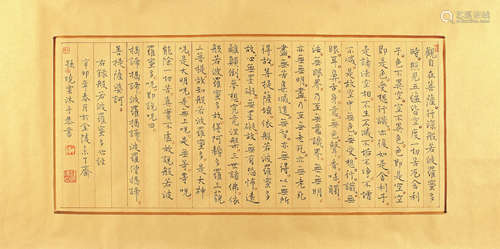 觀自在菩薩。行深般若波羅蜜多
時照見五蘊皆空度一切苦厄舍利
子。色不異空。空不異色。色即是空。空
即是色。受想行識亦復如是。舍利子。
是諸法空相不生不滅不垢不淨不增
不減。是故空中無色無受想行識無
眼耳鼻舌身意。無色聲香味觸
法。無眼界乃至無意識界。無無明。
亦無無明盡乃至無老死亦無老死
盡。無苦集滅道。無智亦無得。以無所
得故菩提薩埵依般若波羅蜜多
故心無罣礙無罣礙故無有恐怖遠
離顛倒夢想究竟涅槃三世諸佛依
般若波羅蜜多故得阿耨多羅三藐
三菩提故知般若波羅蜜多是大神
咒是大明咒是無上咒是無等等咒
能除一切苦真實不虛故說般若波
羅蜜多咒。即說咒曰
揭諦揭諦波羅揭諦波羅僧揭諦。
菩提薩婆訶。
右錄般若波羅蜜多心經
辛卯年春月於金陵 齋
沐手恭書